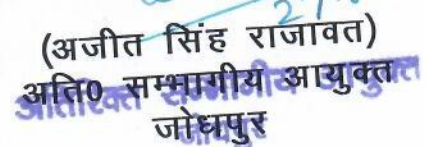 (अजीत सिंह राजावत)
अति0 सम्भागीय आयुक्त
जोधपुर